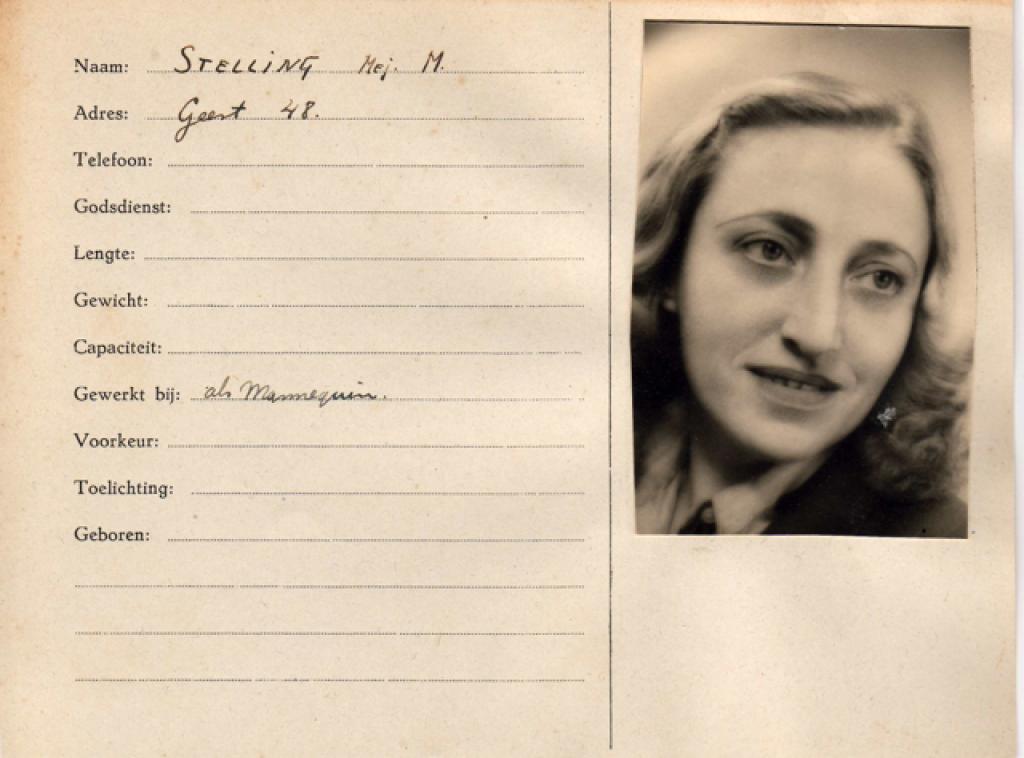 Naam: STELLING Mej. M.
Adres: Geest 48.
Telefoon:
Godsdienst:
Lengte:
Gewicht:
Capaciteit:
Gewerkt bij: als Mannequin.
Voorkeur:
Toelichting:
Geboren: